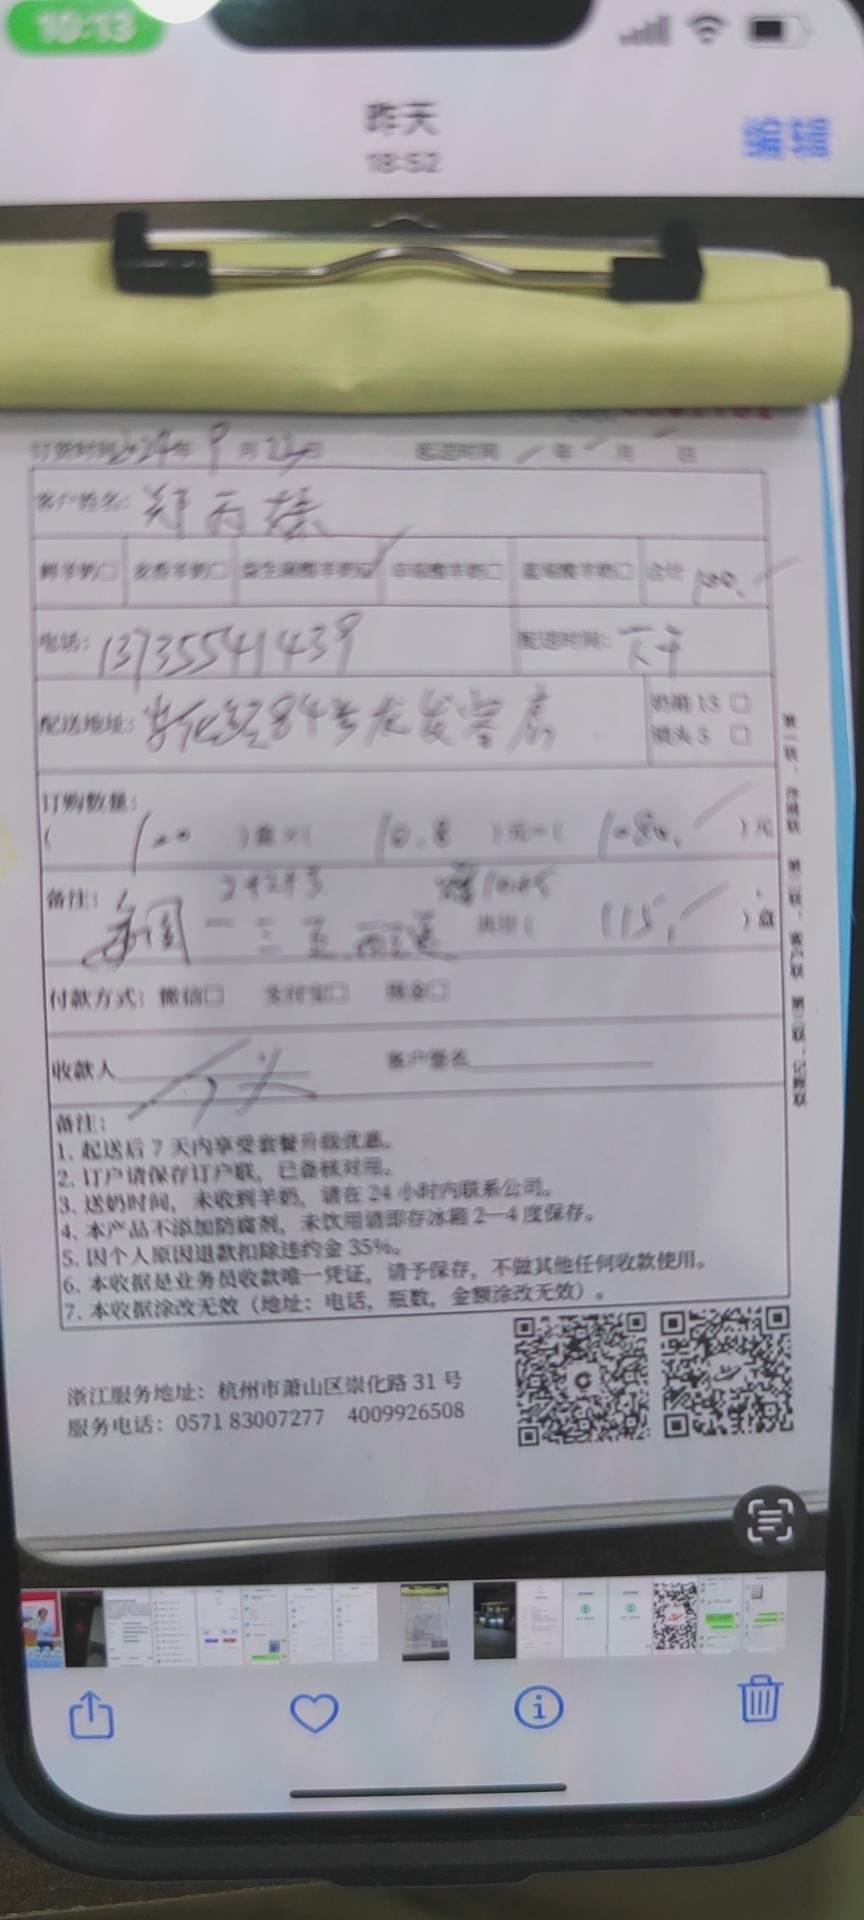 10:13
昨天
18:52
编辑
订货时间2024年9月22日 配送时间 年 月 日
客户姓名:
鲜羊奶□ 益生菌酸羊奶 合计
电话: 13735541439 配送时间: 下午
配送地址: 84号 奶箱 15 □
锁头 5 □
订购数量:
( 100 )盒×( 10.8 )元=( 1080. )元
备注:
每周一三五配送 共计( 115. )盒
付款方式: 微信□ 支付宝□ 现金□
收款人 客户签名
备注:
1. 起送后 7 天内享受套餐升级优惠。
2. 订户请保存订户联, 已备核对用。
3. 送奶时间, 未收到羊奶, 请在 24 小时内联系公司。
4. 本产品不添加防腐剂, 未饮用请即存冰箱 2—4 度保存。
5. 因个人原因退款扣除违约金 35%。
6. 本收据是业务员收款唯一凭证, 请予保存, 不做其他任何收款使用。
7. 本收据涂改无效（地址: 电话, 瓶数, 金额涂改无效）。
第二联、客户联 第三联、记账联
浙江服务地址: 杭州市萧山区崇化路 31 号
服务电话: 0571 83007277 4009926508